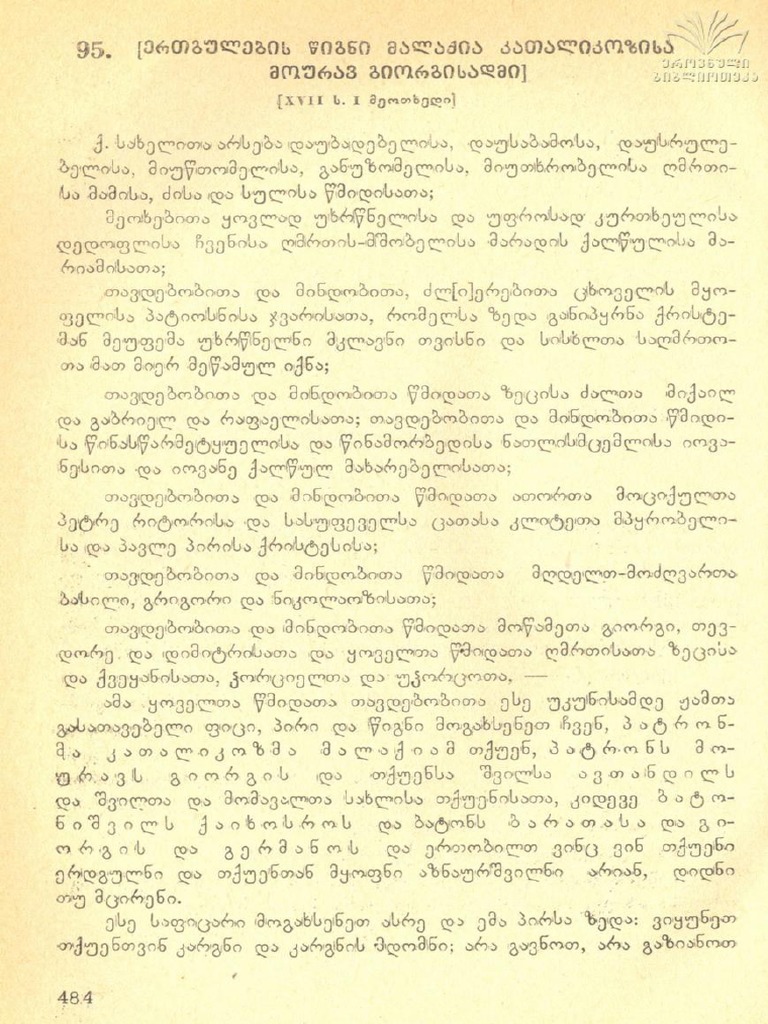 95. [ერთგულების წიგნი მალაქია კათალიკოზისა
მოურავ გიორგისადმი]
ეროვნული
ბიბლიოთეკა
[XVII ს. I მეოთხედი]
ქ. სახელითა არსება დაუბადებელისა, დაუსაბამოსა, დაუსრულე-
ბელისა, მიუწთომელისა, განუზომელისა, მიუთხრობელისა ღმრთი-
სა მამისა, ძისა და სულისა წმიდისათა;
მეოხებითა ყოვლად უხრწნელისა და უფროსად კურთხეულისა
დედოფლისა ჩვენისა ღმრთის-მშობელისა მარადის ქალწულისა მა-
რიამისათა;
თავდებობითა და მინდობითა, ძლ[ი]ერებითა ცხოველის მყო-
ფელისა პატიოსნისა ჯვარისათა, რომელსა ზედა განიპყრნა ქრისტე-
მან მეუფემა უხრწნელნი მკლავნი თვისნი და სისხლთა საღმრთო-
თა მათ მიერ შეწამულ იქნა;
თავდებობითა და მინდობითა წმიდათა ზეცისა ძალთა მიქაილ
და გაბრიელ და რაფაელისათა; თავდებობითა და მინდობითა წმიდი-
სა წინასწარმეტყუელისა და წინამორბედისა ნათლისმცემლისა იოვა-
ნესითა და იოვანე ქალწულ მახარებელისათა;
თავდებობითა და მინდობითა წმიდათა ათორთა მოციქულთა
პეტრე რიტორისა და სასუფეველსა ცათასა კლიტეთა მპყრობელი-
სა და პავლე პირისა ქრისტესისა;
თავდებობითა და მინდობითა წმიდათა მღდელთ-მოძღვართა
ბასილი, გრიგორი და ნიკოლაოზისათა;
თავდებობითა და მინდობითა წმიდათა მოწამეთა გიორგი, თევ-
დორე და დიმიტრისათა და ყოველთა წმიდათა ღმრთისათა ზეცისა
და ქვეყანისათა, ჴორციელთა და უჴორცოთა, —
ამა ყოველთა წმიდათა თავდებობითა ესე უკუნისამდე ჟამთა
გასათავებელი ფიცი, პირი და წიგნი მოგახსენეთ ჩვენ, პატრონ-
მა კათალიკოზმა მალაქიამ თქუენ, პატრონს მო-
ურავს გიორგის და თქუენსა შვილსა ავთანდილს
და შვილთა და მომავალთა სახლისა თქუენისათა, კიდევე ბატო-
ნიშვილს ქაიხოსროს და ბატონს ბარათასა და გი-
ორგის და გერმანოს და ერთობილთ ვინც ვინ თქუენი
ერდგულნი და თქუენთან მყოფნი აზნაურშვილნი არიან, დიდნი
თუ მცირენი.
ესე საფიცარი მოგახსენეთ ასრე და ემა პირსა ზედა: ვიყუნეთ
თქუენთვინ კარგნი და კარგნის მდომნი; არა გავნოთ, არა გაზიანოთ
484